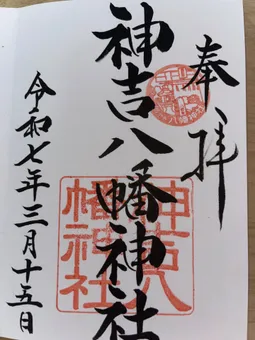 奉拝
神吉八幡神社
令和七年三月十五日
神吉八
幡神社